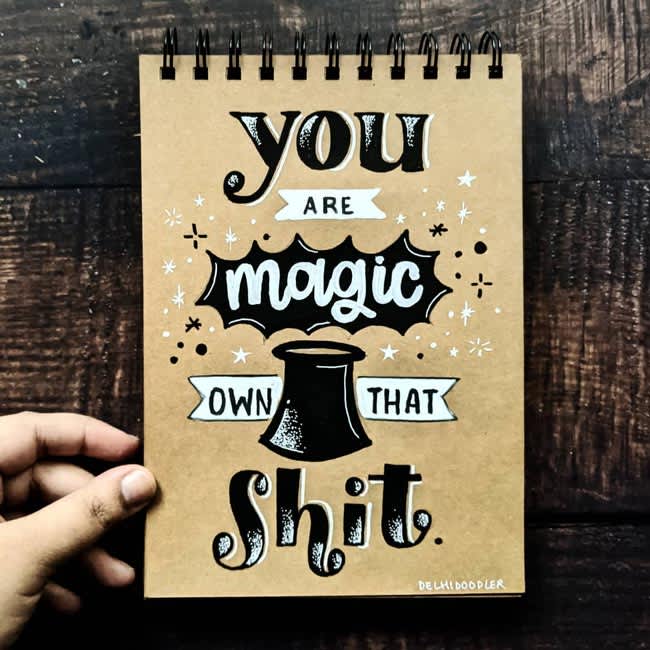 you
ARE
magic
OWN THAT
Shit.
DELHIDOODLER